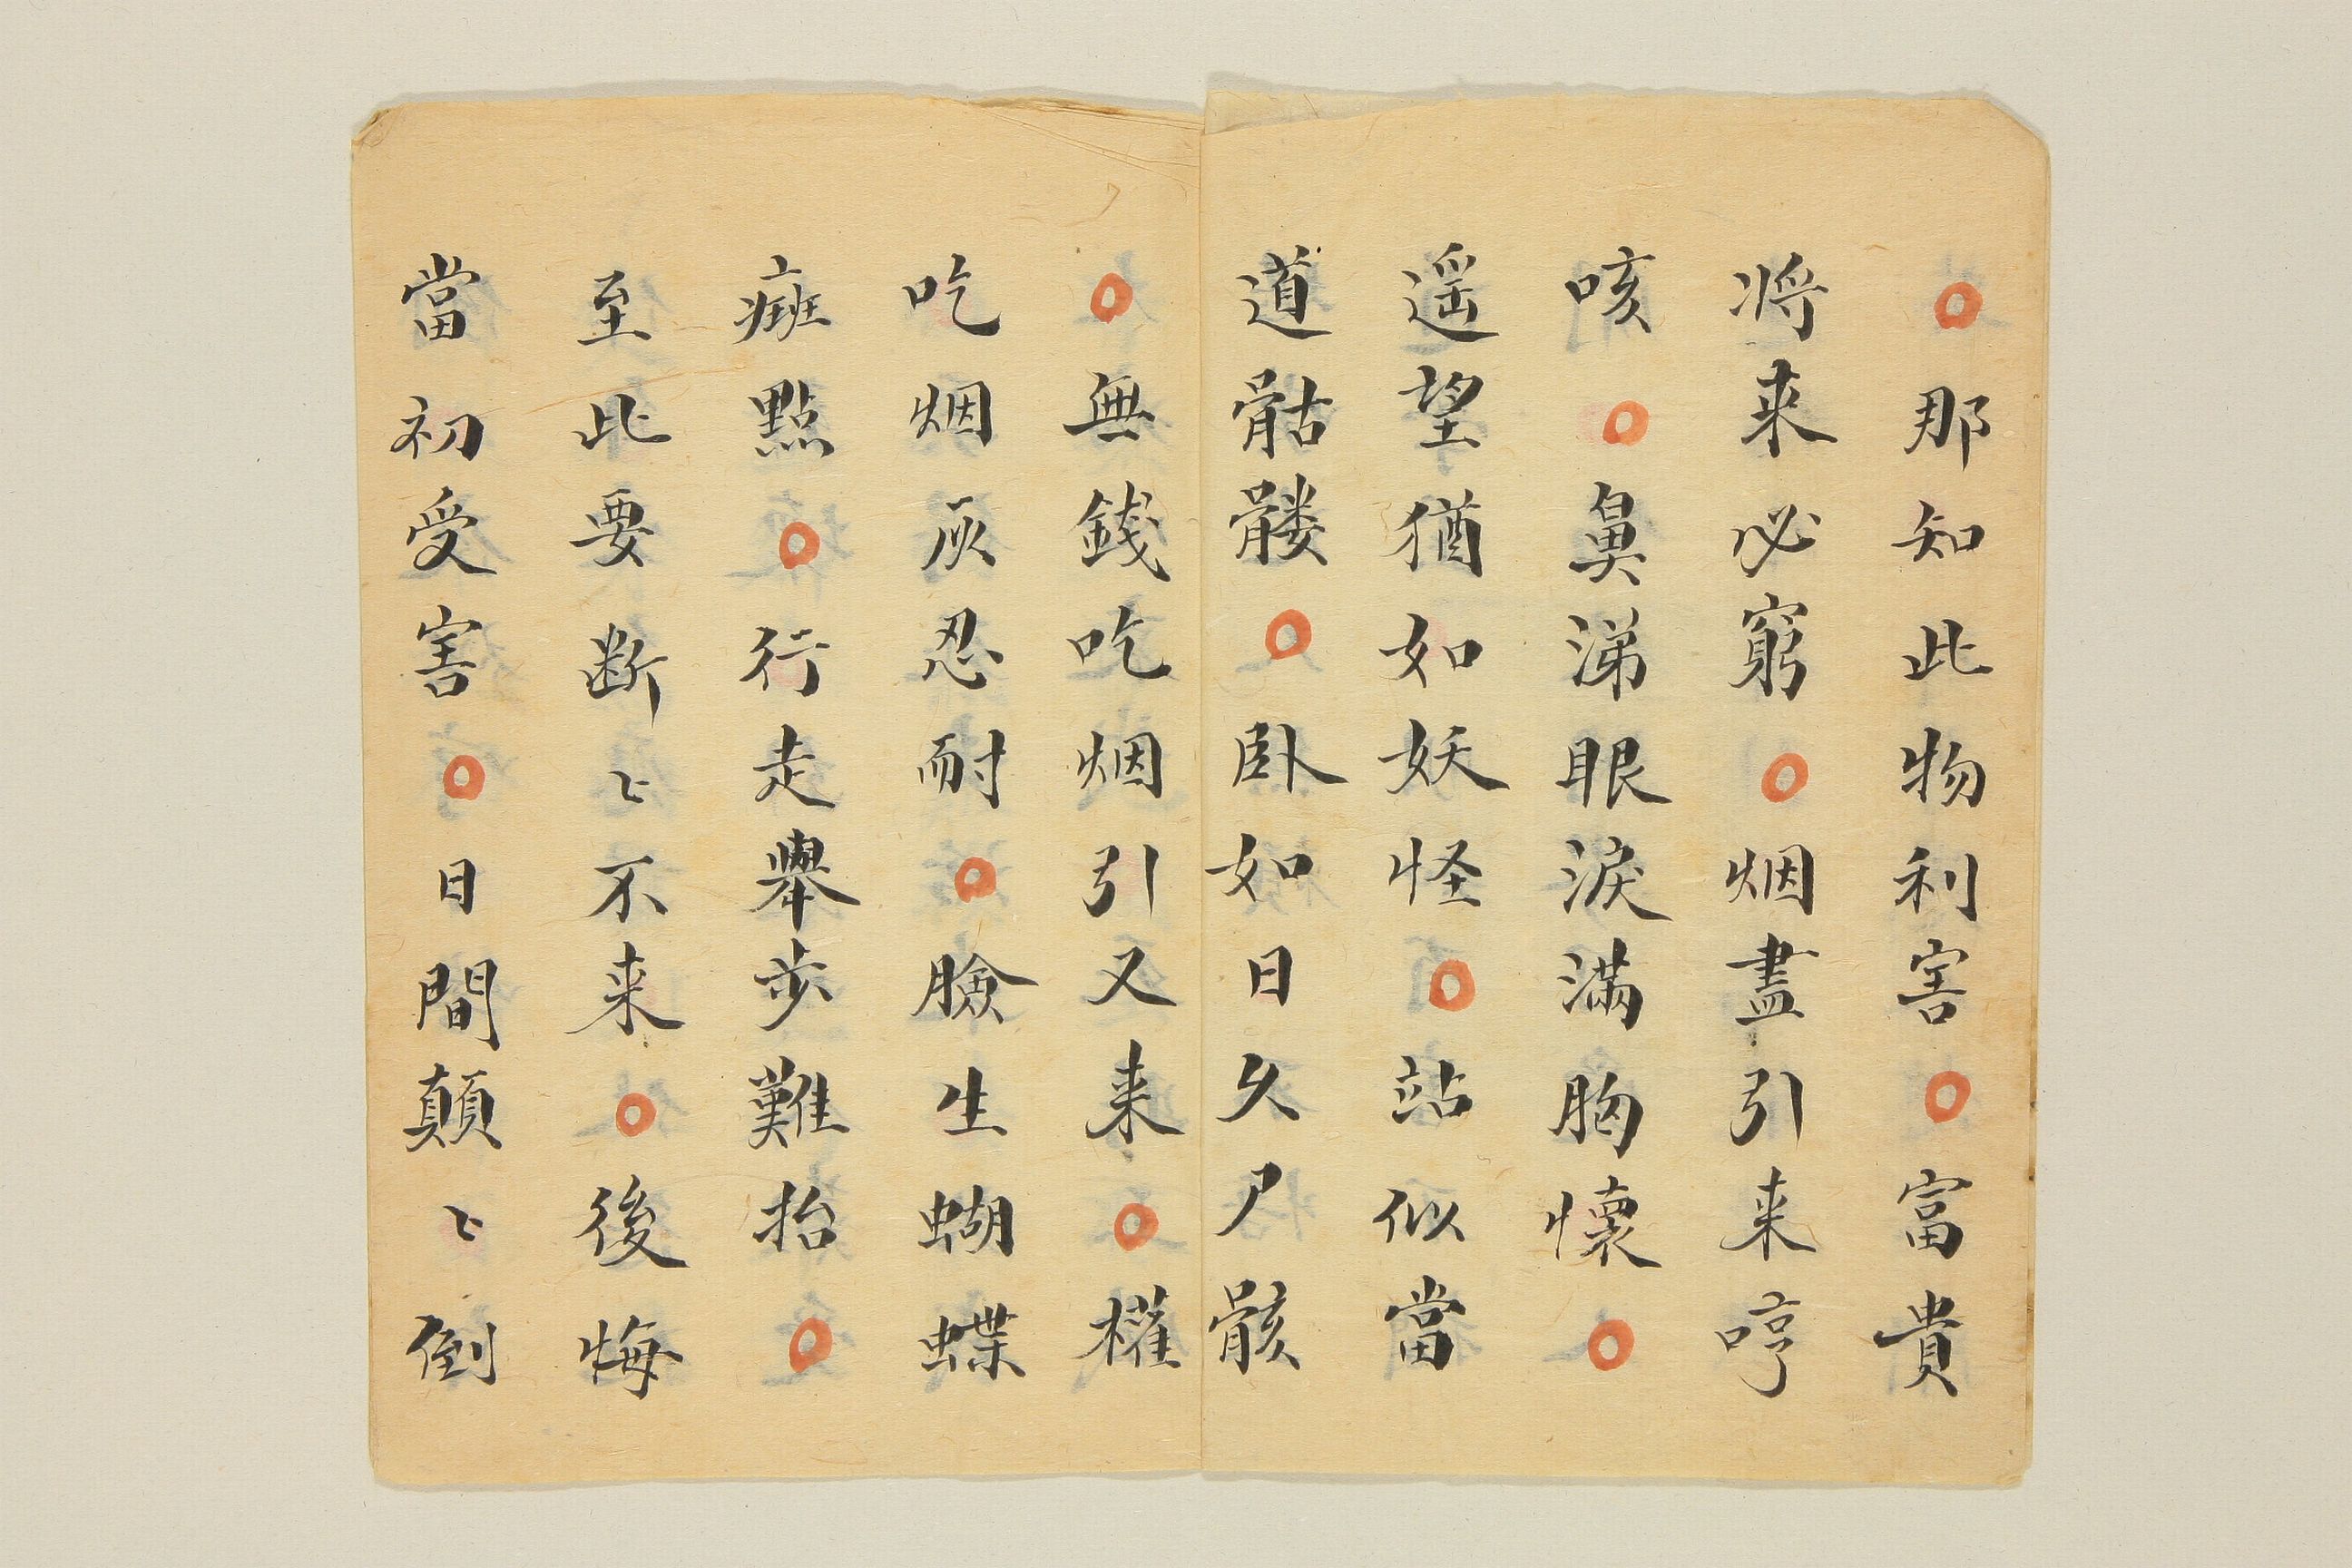 ○那知此物利害○富貴
将来必窮○烟盡引来哼
咳○鼻涕眼淚滿胸懷○
遥望猶如妖怪○站似當
道骷髏○卧如日久尸骸
○無錢吃烟引又来○權
吃烟灰忍耐○臉生蝴蝶
㾦點○行走舉步難抬○
至此要断〻不来○後悔
當初受害○日間顛〻倒